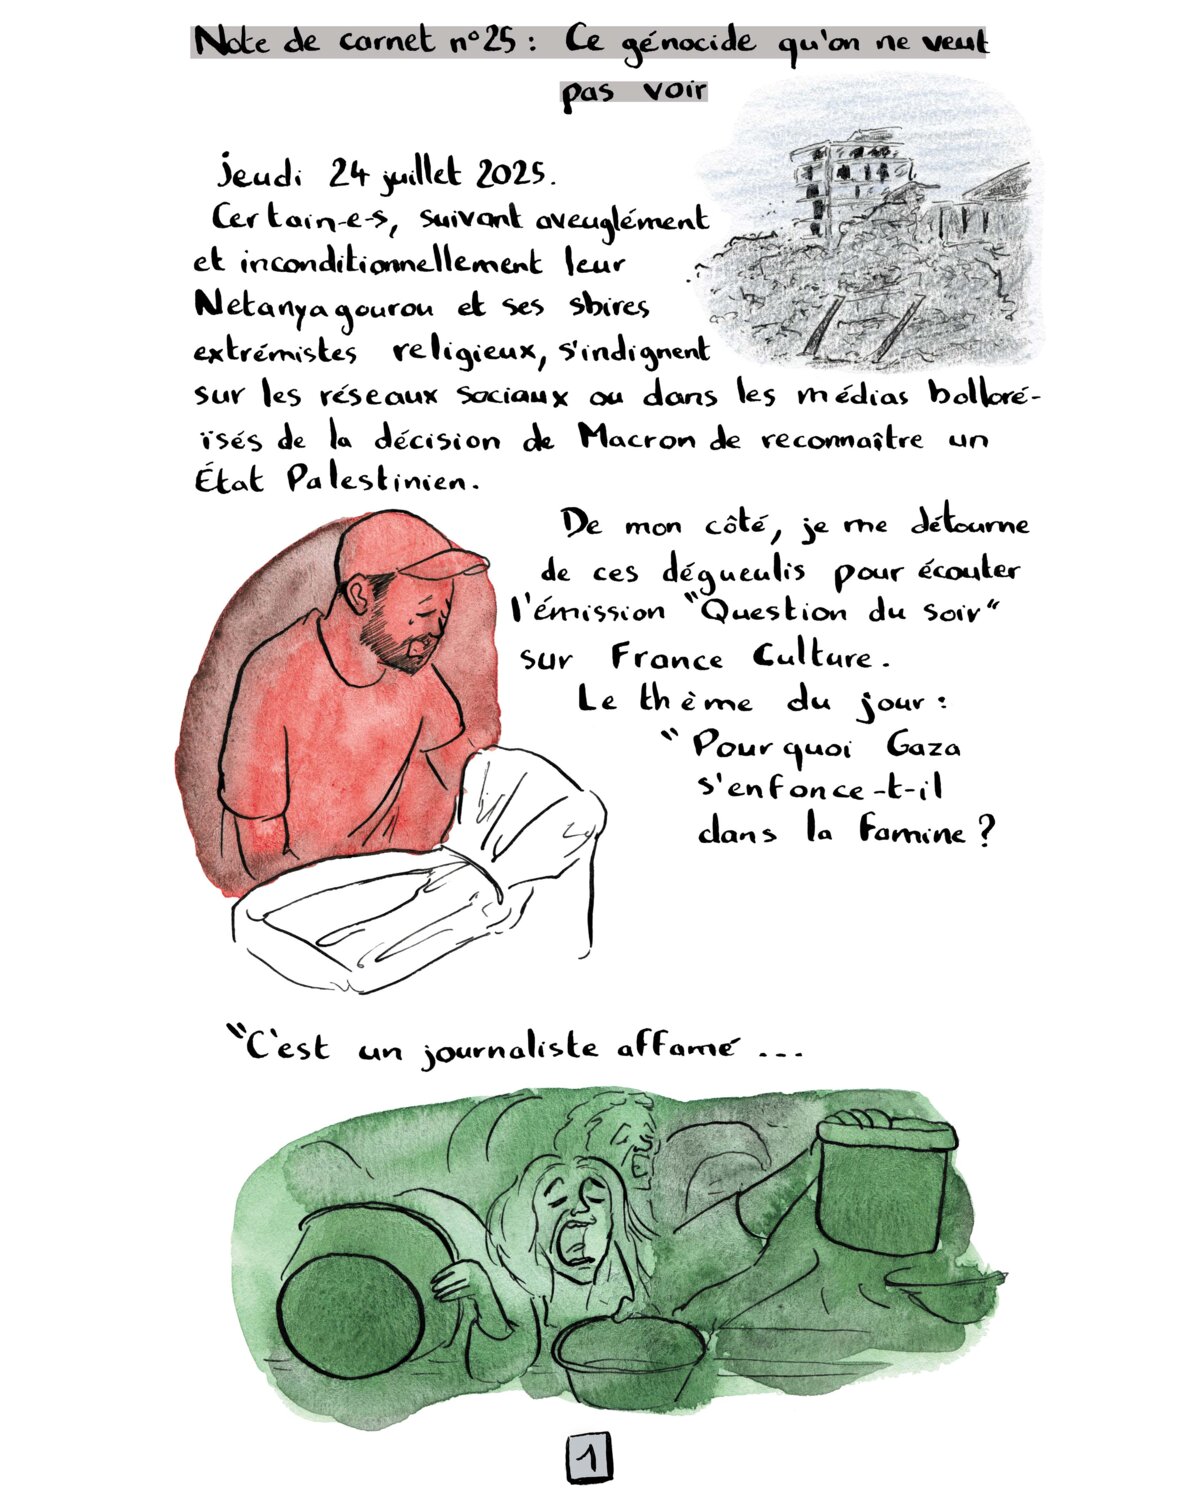 Note de carnet n°25 : Ce génocide qu'on ne veut
pas voir
Jeudi 24 juillet 2025.
Certain-e-s, suivant aveuglément
et inconditionnellement leur
Netanyagourou et ses sbires
extrémistes religieux, s'indignent
sur les réseaux sociaux ou dans les médias bolloré-
ïsés de la décision de Macron de reconnaître un
État Palestinien.
De mon côté, je me détourne
de ces dégueulis pour écouter
l'émission "Question du soir"
sur France Culture.
Le thème du jour :
"Pourquoi Gaza
s'enfonce-t-il
dans la famine ?
"C'est un journaliste affamé ...
1